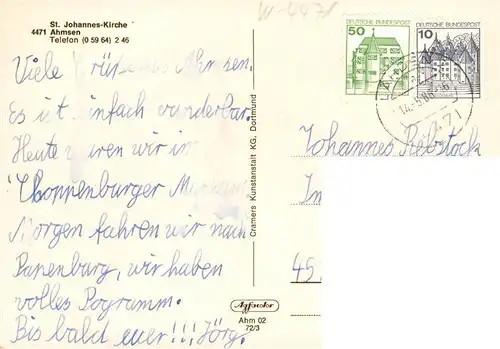 St. Johannes-Kirche
4471 Ahmsen
Telefon (0 59 64) 2 46
Viele Grüße aus Ahmsen.
Es ist einfach wunderbar.
Heute waren wir im
Cloppenburger Museum
Morgen fahren wir nach
Papenburg, wir haben
volles Pogramm.
Bis bald euer!!! Jörg.
Cramers Kunstanstalt KG, Dortmund
Agfacolor
Ahm 02
72/3
50
DEUTSCHE BUNDESPOST
10
DEUTSCHE BUNDESPOST
4471
Johannes Rebstock
In
45